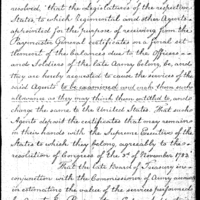 resolved, that the Legislatures of the respective
States, to which Regimental and other Agents
appointed for the purpose of receiving from the
Paymaster General certificates on a final set-
tlement of the balances due to the Officers
and Soldiers of the late Army belong, be, and
they are hereby requested to cause the services of the
said Agents to be examined and make them such
allowance as they may think them entitled to, and
charge the same to the United States. That such
Agents deposit the certificates that may remain
in their hands with the Supreme Executives of the
States to which they belong, agreeably to the
resolution of Congress of the 3d of November 1783
That the late Board of Treasury in
conjunction with the Commissioner of Army accounts
in estimating the value of the services performed